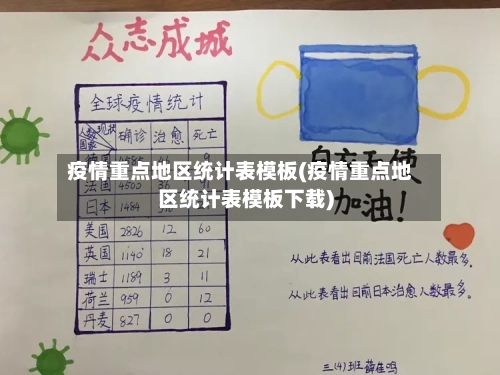 众志成城
全球疫情统计
人数 现状 确诊 治愈 死亡
国家
疫情重点地区统计表模板(疫情重点地
区统计表模板下载)
法国 4500
日本 1484
美国 2826 12 60
英国 1140 18 21
瑞士 1189 3 11
荷兰 959 0 12
丹麦 827 0 0
加油!
从此表看出目前法国死亡人数最多.
从此表看出目前日本治愈人数最多。
三(4)班